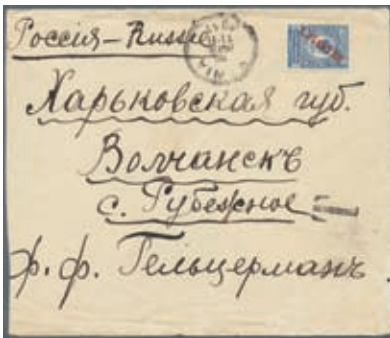 Россия – Russie
Харьковская губ.
Волчанскъ
с. Рубежное
Ф. Ф. Гельцерманъ